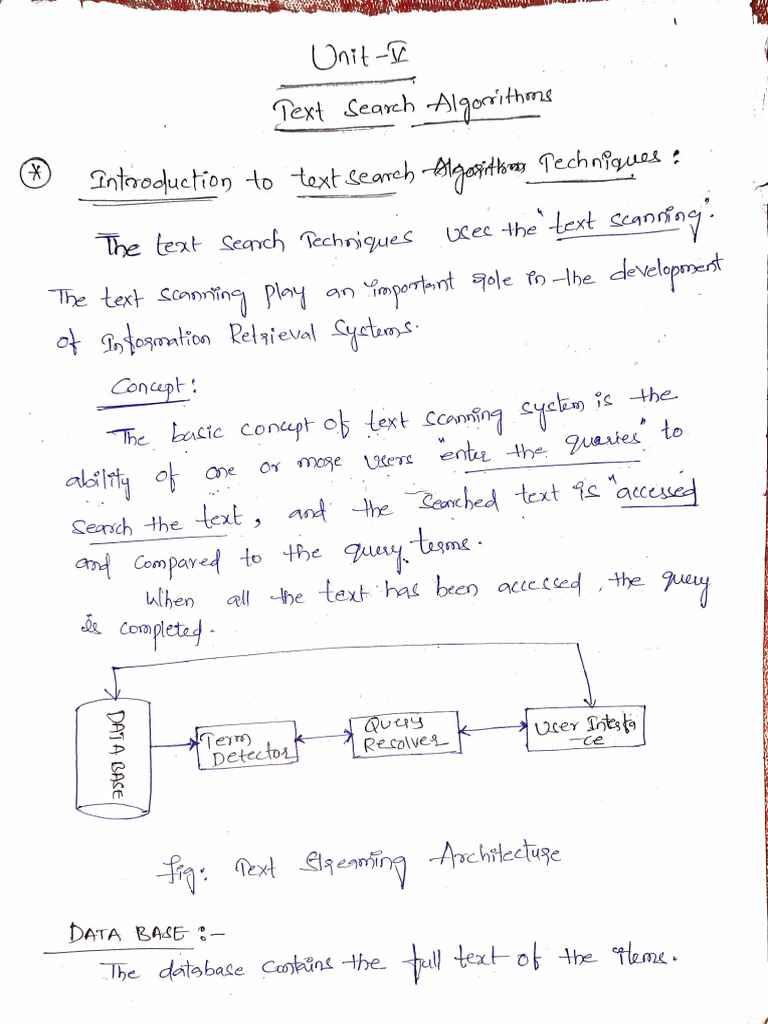 Unit-V
Text Search Algorithms
* Introduction to text search Algorithm Techniques:
The text search Techniques uses the "text scanning".
The text scanning play an important role in the development
of Information Retrieval Systems.
Concept:
The basic concept of text scanning system is the
ability of one or more users "enter the quaries" to
search the text, and the searched text is "accessed
and compared to the query terms.
When all the text has been accessed, the query
is completed.
DATA BASE
Term
Detector
Query
Resolver
User Interfa
-ce
fig: Text Streaming Architecture
DATA BASE:-
The database contains the full text of the items.